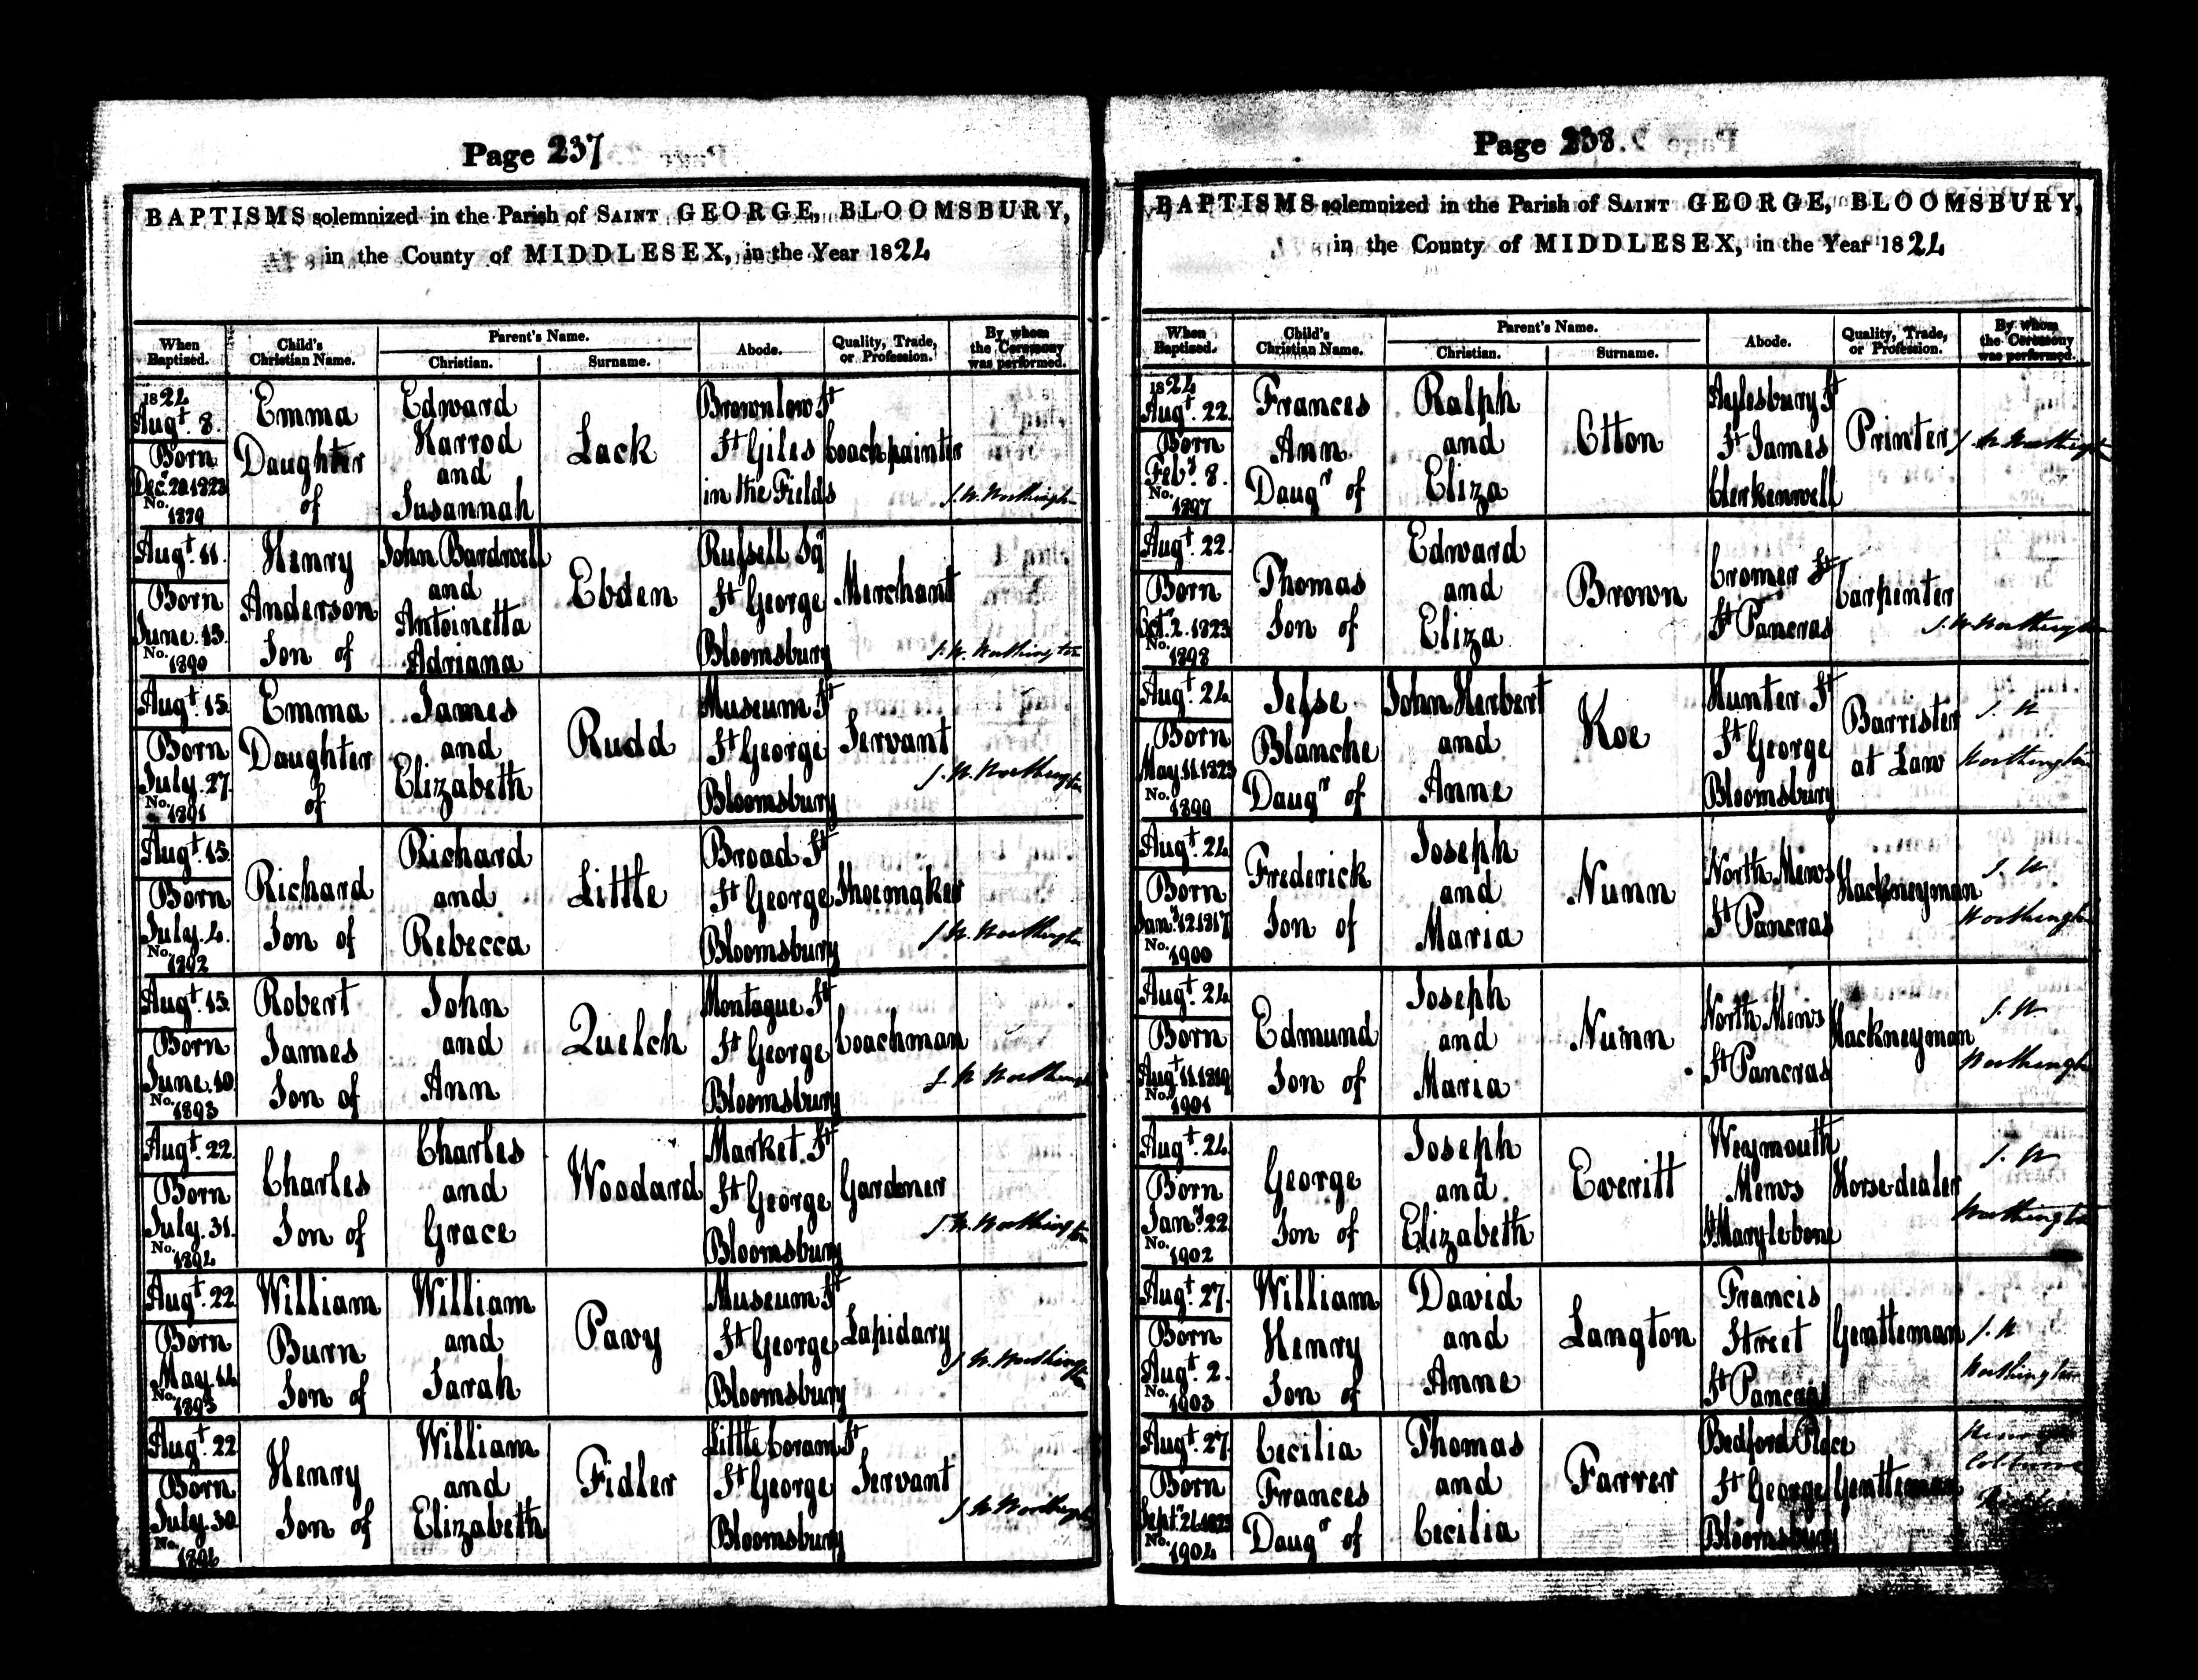 Page 237
BAPTISMS solemnized in the Parish of SAINT GEORGE, BLOOMSBURY,
in the County of MIDDLESEX, in the Year 1824
When Baptized.
Child's Christian Name.
Parent's Name.
Christian.
Surname.
Abode.
Quality, Trade, or Profession.
By whom the Ceremony was performed.
1824
Augt. 8.
Born
Decr. 20 1823
No. 1889
Emma
Daughter
of
Edward
Harrod
and
Susannah
Lack
Brownlow St
St Giles
in the Fields
Coach painter
J. W. Worthington
Augt. 11.
Born
June. 15.
No. 1890
Henry
Anderson
Son of
John Bardwell
and
Antoinetta
Adriana
Ebden
Russell Sqr
St George
Bloomsbury
Merchant
J. W. Worthington
Augt. 15.
Born
July. 27.
No. 1891
Emma
Daughter
of
James
and
Elizabeth
Rudd
Museum St
St George
Bloomsbury
Servant
J. W. Worthington
Augt. 15.
Born
July. 4.
No. 1892
Richard
Son of
Richard
and
Rebecca
Little
Broad St
St George
Bloomsbury
Shoemaker
J. W. Worthington
Augt. 15.
Born
June. 10.
No. 1893
Robert
James
Son of
John
and
Ann
Quelch
Montague St
St George
Bloomsbury
Coachman
J. W. Worthington
Augt. 22.
Born
July. 31.
No. 1894
Charles
Son of
Charles
and
Grace
Woodard
Market. St
St George
Bloomsbury
Gardener
J. W. Worthington
Augt. 22
Born
May. 14
No. 1895
William
Burn
Son of
William
and
Sarah
Pavy
Museum St
St George
Bloomsbury
Lapidary
J. W. Worthington
Augt. 22
Born
July. 30
No. 1896
Henry
Son of
William
and
Elizabeth
Fidler
Little Coram St
St George
Bloomsbury
Servant
J. W. Worthington
Page 238.
BAPTISMS solemnized in the Parish of SAINT GEORGE, BLOOMSBURY,
in the County of MIDDLESEX, in the Year 1824
When Baptized.
Child's Christian Name.
Parent's Name.
Christian.
Surname.
Abode.
Quality, Trade, or Profession.
By whom the Ceremony was performed.
1824
Augt. 22.
Born
Feby. 8.
No. 1897
Frances
Ann
Daugr of
Ralph
and
Eliza
Otton
Aylesbury St
St James
Clerkenwell
Printer
J. W. Worthington
Augt. 22.
Born
Oct. 2. 1823
No. 1898
Thomas
Son of
Edward
and
Eliza
Brown
Cromer St
St Pancras
Carpenter
J. W. Worthington
Augt. 24
Born
May. 11. 1823
No. 1899
Jesse
Blanche
Daugr of
John Herbert
and
Anne
Koe
Hunter St
St George
Bloomsbury
Barrister
at Law
J. W
Worthington
Augt. 24
Born
Jany. 12 1817
No. 1900
Frederick
Son of
Joseph
and
Maria
Nunn
North Mews
St Pancras
Hackneyman
J. W
Worthington
Augt. 24
Born
Augt. 11. 1819
No. 1901
Edmund
Son of
Joseph
and
Maria
Nunn
North Mews
St Pancras
Hackneyman
J. W
Worthington
Augt. 24.
Born
Jany. 22
No. 1902
George
Son of
Joseph
and
Elizabeth
Everitt
Weymouth
Mews
St Marylebone
Horse dealer
J. W
Worthington
Augt. 27.
Born
Augt. 2.
No. 1903
William
Henry
Son of
David
and
Anne
Langton
Francis
Street
St Pancras
Gentleman
J. W
Worthington
Augt. 27
Born
Septr. 24 1823
No. 1904
Cecilia
Frances
Daugr of
Thomas
and
Cecilia
Farrer
Bedford Place
St George
Bloomsbury
Gentleman